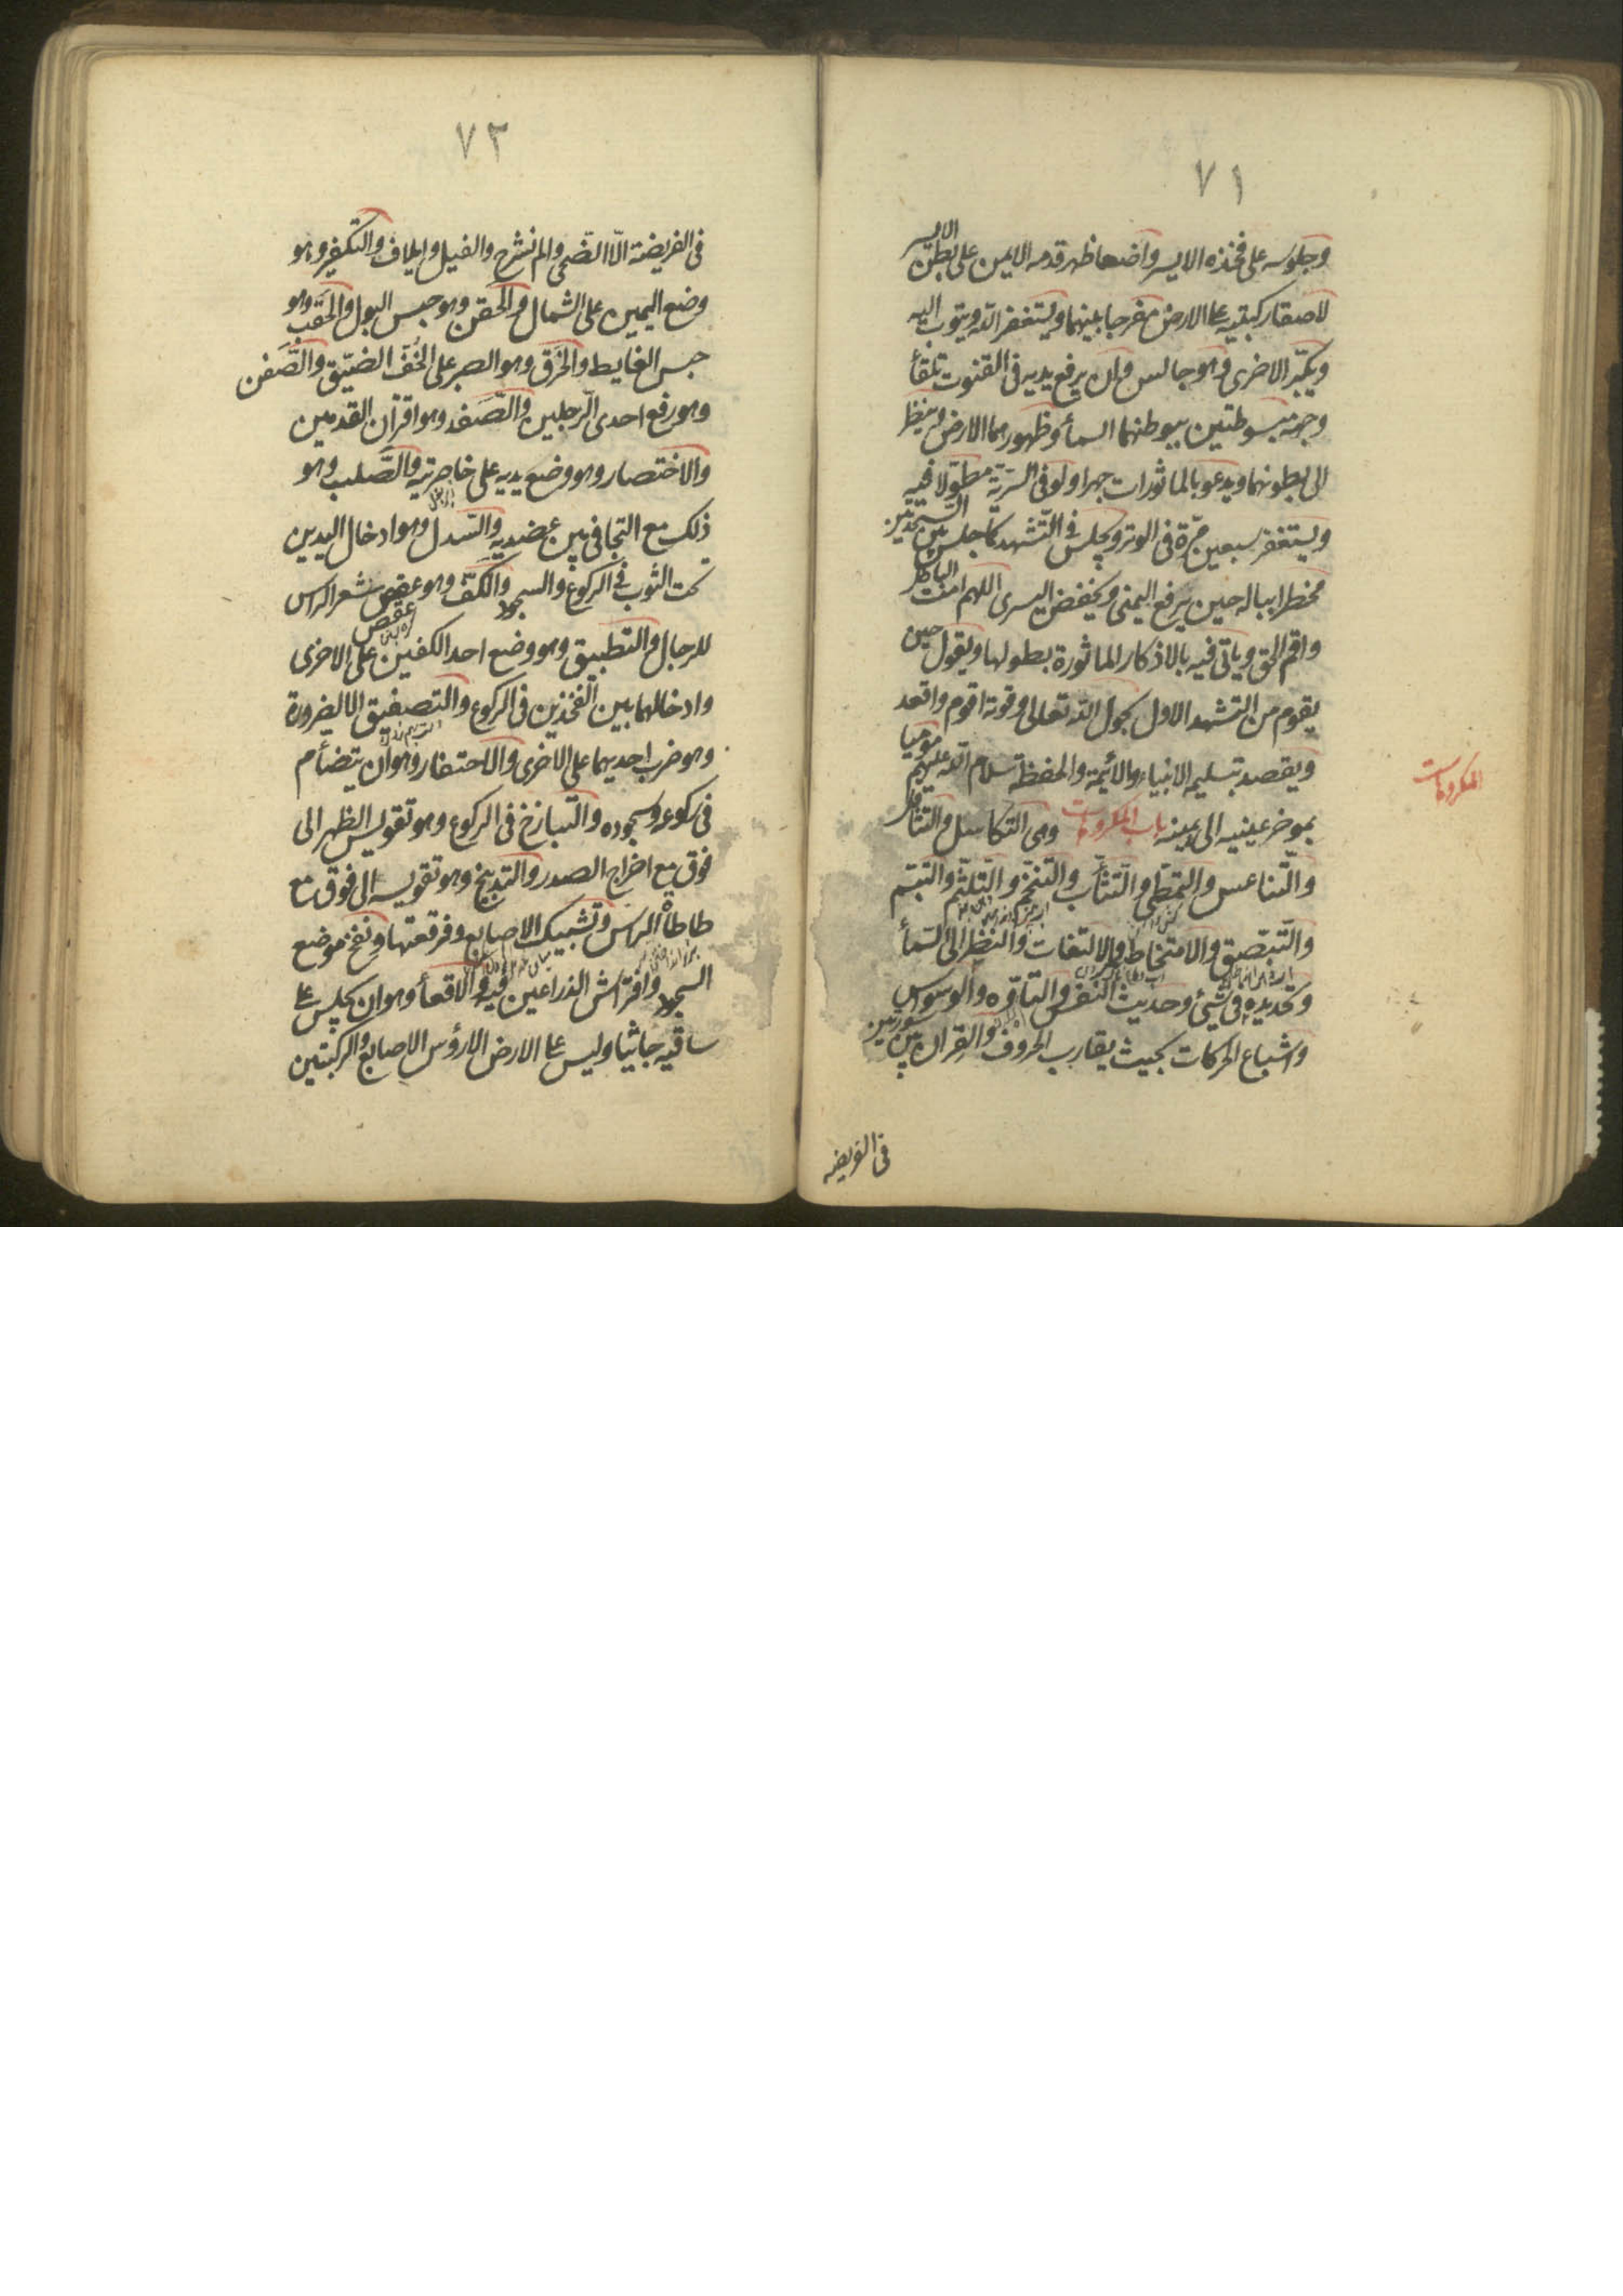 ٧١
وجلوسه على فخذه الايسر واضعا ظهر قدمه الايمن على بطن الايسر
لاصقا ركبتيه على الارض مفرجا بينهما ويستغفر الله ويتوب اليه
ويكبّر الاخرى وهو جالس وان يرفع يديه في القنوت تلقأ
وجهه مبسوطتين ببطونهما السمأ وظهورهما الارض وينظر
الى بطونهما ويدعو بالماثورات جهرا ولو في السريّة مطوّلا فيه
ويستغفر سبعين مرّة في الوتر ويجلس في التّشهد كما جلس بين السّجدتين
مخطرا بباله حين يرفع اليمنى ويخفض اليسرى اللهم امت الباطل
واقم الحق وياتى فيه بالاذكار الماثورة بطولها ويقول حين
يقوم من التشهد الاول بحول الله تعالى وقوته اقوم واقعد
ويقصد بتسليمه الانبياء والائمة والحفظة سلام الله عليهم موميا
بموخر عينيه الى يمينه باب المكروهات وهى التكاسل والتثاقل
والتّناعس والتمطّي والتّثأب والتنخّم والتّلثّم والتبسّم
والتّبصّق والامتخاط والالتفات والنظر الى السّمأ
وتحديده في شيئ وحديث النفس والتاوّه والوسواس
واشباع الحركات بحيث يقارب الحروف والقران بين سورتين
في الفريضه
المكروهات
٧٢
في الفريضة الّا الضّحى والم نشرح والفيل وايلاف والتكفير وهو
وضع اليمين على الشمال والحَقن وهو حبس البول والحَقب وهو
حبس الغايط والحَزق وهو الصبر على الخُفّ الضيّق والصَّفن
وهو رفع احدى الرّجلين والصَّفد وهو اقران القدمين
والاختصار وهو وضع يديه على خاصرتيه والصّلب وهو
ذلك مع التجافي بين عضديه والسّدل وهو ادخال اليدين
تحت الثوب في الركوع والسجود والكفّ وهو عقص شعر الراس
عقص
للرجال والتطبيق وهو وضع احد الكفين على الاخرى
وادخالهما بين الفخذين في الركوع والتصفيق الا لضرورة
وهو ضرب احديهما على الاخرى والاحتفار وهو ان يتضأم
في ركوعه وسجوده والتبازخ في الركوع وهو تقويس الظهر الى
فوق مع اخراج الصدر والتدبيخ وهو تقويسه الى فوق مع
طاطأة الراس وتشبيك الاصابع وفرقعتها ونفخ موضع
السجود وافتراش الذراعين فيه والاقعأ وهو ان يجلس على
ساقيه جاثيا وليس على الارض الا رؤس الاصابع والركبتين